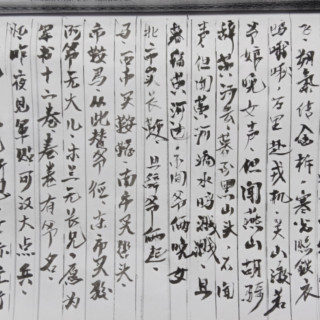 昨夜见军帖可汗大点兵
军书十二卷卷卷有爷名
阿爷无大儿木兰无长兄愿为
市鞍马从此替爷征东市买骏
马西市买鞍鞯南市买辔头
北市买长鞭旦辞爷娘去
暮宿黄河边不闻爷娘唤女
声但闻黄河流水鸣溅溅旦
辞黄河去暮至黑山头不闻
爷娘唤女声但闻燕山胡骑
鸣啾啾万里赴戎机关山渡若
飞朔气传金柝寒光照铁衣